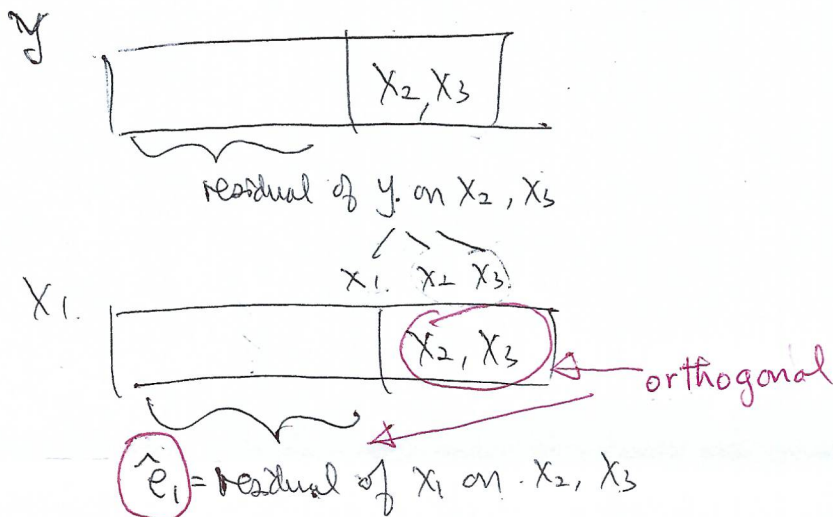 y
X2, X3
residual of y. on X2, X3
X1. X2 X3.
X1.
X2, X3
orthogonal
ê1 = residual of X1 on. X2, X3